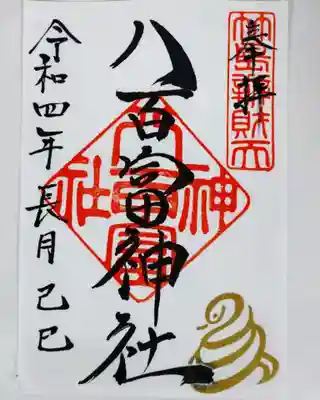 奉拝
竹島弁財天
八百富神社
八百富神社
令和四年長月己巳